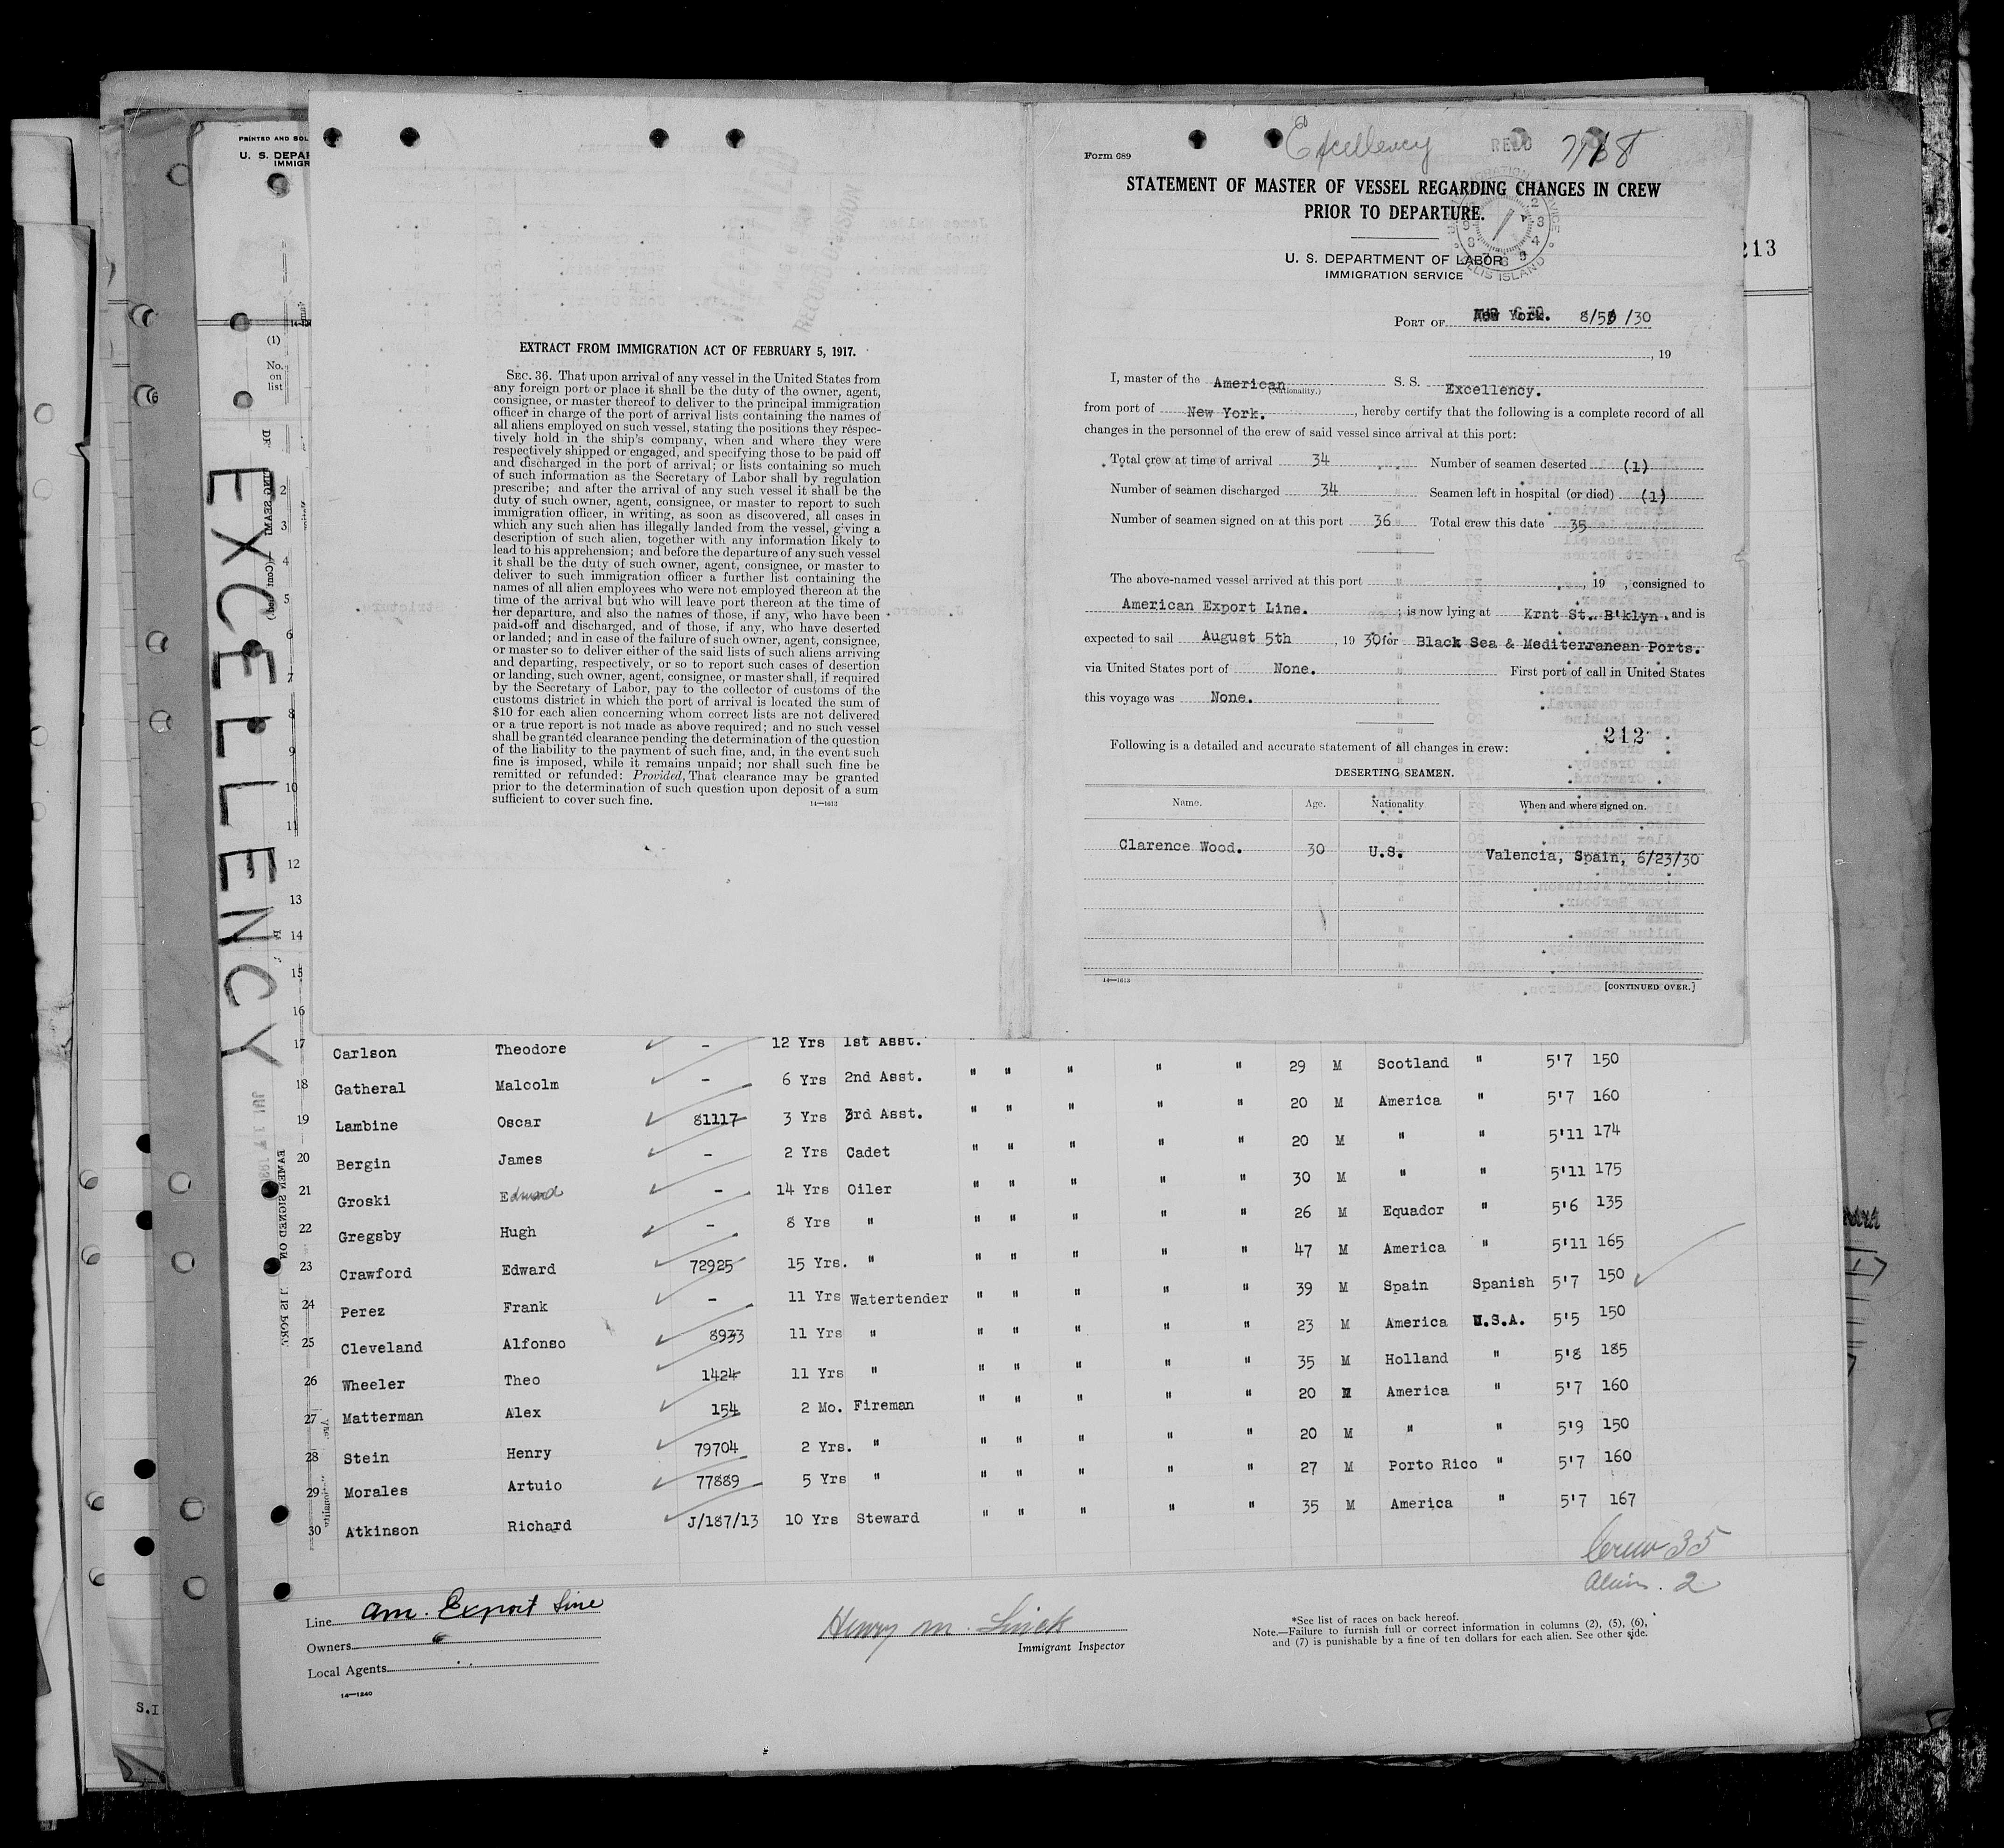 PRINTED AND SOL
U. S. DEPAR
IMMIGR
(1)
No.
on
list
EXCELLENCY
EXTRACT FROM IMMIGRATION ACT OF FEBRUARY 5, 1917.
SEC. 36. That upon arrival of any vessel in the United States from
any foreign port or place it shall be the duty of the owner, agent,
consignee, or master thereof to deliver to the principal immigration
officer in charge of the port of arrival lists containing the names of
all aliens employed on such vessel, stating the positions they respec-
tively hold in the ship's company, when and where they were
respectively shipped or engaged, and specifying those to be paid off
and discharged in the port of arrival; or lists containing so much
of such information as the Secretary of Labor shall by regulation
prescribe; and after the arrival of any such vessel it shall be the
duty of such owner, agent, consignee, or master to report to such
immigration officer, in writing, as soon as discovered, all cases in
which any such alien has illegally landed from the vessel, giving a
description of such alien, together with any information likely to
lead to his apprehension; and before the departure of any such vessel
it shall be the duty of such owner, agent, consignee, or master to
deliver to such immigration officer a further list containing the
names of all alien employees who were not employed thereon at the
time of the arrival but who will leave port thereon at the time of
her departure, and also the names of those, if any, who have been
paid off and discharged, and of those, if any, who have deserted
or landed; and in case of the failure of such owner, agent, consignee,
or master so to deliver either of the said lists of such aliens arriving
and departing, respectively, or so to report such cases of desertion
or landing, such owner, agent, consignee, or master shall, if required
by the Secretary of Labor, pay to the collector of customs of the
customs district in which the port of arrival is located the sum of
$10 for each alien concerning whom correct lists are not delivered
or a true report is not made as above required; and no such vessel
shall be granted clearance pending the determination of the question
of the liability to the payment of such fine, and, in the event such
fine is imposed, while it remains unpaid; nor shall such fine be
remitted or refunded: Provided, That clearance may be granted
prior to the determination of such question upon deposit of a sum
sufficient to cover such fine.
14—1613
Excellency
REC'D
Form 689
STATEMENT OF MASTER OF VESSEL REGARDING CHANGES IN CREW
PRIOR TO DEPARTURE.
U. S. DEPARTMENT OF LABOR
IMMIGRATION SERVICE
ELLIS ISLAND
213
PORT OF New York. 8/5 /30
, 19
I, master of the American S. S. Excellency.
(Nationality.)
from port of New York. , hereby certify that the following is a complete record of all
changes in the personnel of the crew of said vessel since arrival at this port:
Total crew at time of arrival 34 Number of seamen deserted (1)
Number of seamen discharged 34 Seamen left in hospital (or died) (1)
Number of seamen signed on at this port 36 Total crew this date 35
The above-named vessel arrived at this port , 19 , consigned to
American Export Line. ; is now lying at Krnt St. B'klyn. and is
expected to sail August 5th , 19 30 for Black Sea & Mediterranean Ports.
via United States port of None. First port of call in United States
this voyage was None.
212
Following is a detailed and accurate statement of all changes in crew:
DESERTING SEAMEN.
Name. Age. Nationality When and where signed on.
Clarence Wood. 30 U.S. Valencia, Spain, 6/23/30
14—1613 [CONTINUED OVER.]
2
3
4
5
6
7
8
9
10
11
12
13
14
15
16
17 Carlson Theodore - 12 Yrs 1st Asst. " " " " " 29 M Scotland " 5'7 150
18 Gatheral Malcolm - 6 Yrs 2nd Asst. " " " " " 20 M America " 5'7 160
19 Lambine Oscar 81117 3 Yrs 3rd Asst. " " " " " 20 M " " 5'11 174
20 Bergin James - 2 Yrs Cadet " " " " " 30 M " " 5'11 175
21 Groski Edward - 14 Yrs Oiler " " " " " 26 M Equador " 5'6 135
22 Gregsby Hugh - 8 Yrs " " " " " " 47 M America " 5'11 165
23 Crawford Edward 72925 15 Yrs. " " " " " " 39 M Spain Spanish 5'7 150
24 Perez Frank - 11 Yrs Watertender " " " " " 23 M America U.S.A. 5'5 150
25 Cleveland Alfonso 8933 11 Yrs " " " " " " 35 M Holland " 5'8 185
26 Wheeler Theo 1424 11 Yrs " " " " " " 20 M America " 5'7 160
27 Matterman Alex 154 2 Mo. Fireman " " " " " 20 M " " 5'9 150
28 Stein Henry 79704 2 Yrs. " " " " " " 27 M Porto Rico " 5'7 160
29 Morales Artuio 77889 5 Yrs " " " " " " 35 M America " 5'7 167
30 Atkinson Richard J/187/13 10 Yrs Steward
Crew 35
Alien. 2
Line Am. Export Line
Owners
Local Agents
14—1240
Henry M. Linick
Immigrant Inspector
*See list of races on back hereof.
Note.—Failure to furnish full or correct information in columns (2), (5), (6),
and (7) is punishable by a fine of ten dollars for each alien. See other side.
S.I